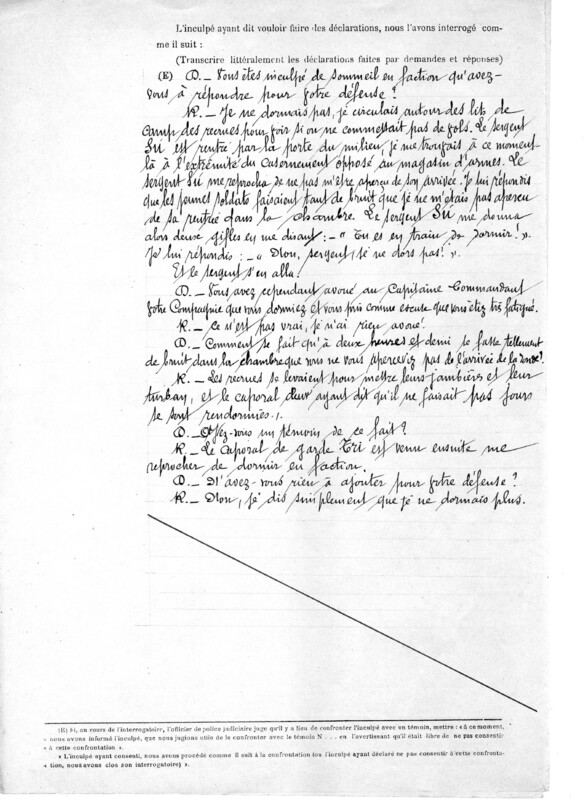 L'inculpé ayant dit vouloir faire des déclarations, nous l'avons interrogé com-
me il suit :
(Transcrire littéralement les déclarations faites par demandes et réponses)
(E) D. — Vous êtes inculpé de sommeil en faction qu'avez-
vous à répondre pour votre défense ?
R. — Je ne dormais pas, je circulais autour des lits de
camp des recrues pour voir si on ne commettait pas de vols. Le sergent
Sű est rentré par la porte du milieu, je me trouvais à ce moment
là à l'extrémité du Casernement opposé au magasin d'armes. Le
sergent Sű me reprocha de ne pas m'être aperçu de son arrivée. Je lui répondis
que les jeunes soldats faisaient tant de bruit que je ne m'étais pas aperçu
de sa rentrée dans la chambre. Le sergent Sű me donna
alors deux gifles en me disant : — " Tu es en train de dormir ! ".
Je lui répondis : — " Non, sergent, je ne dors pas ! ".
Et le sergent s'en alla.
D. — Vous avez cependant avoué au Capitaine-Commandant
votre Compagnie que vous dormiez et vous pris comme excuse que vous étiez très fatigué.
R. — Ce n'est pas vrai, je n'ai rien avoué.
D. — Comment se fait qu'à deux heures et demi se fasse tellement
de bruit dans la chambre que vous ne vous apercevez pas de l'arrivée de la ronde ?
R. — Les recrues se levaient pour mettre leurs jambières et leur
turban, et le caporal leur ayant dit qu'il ne faisait pas jours
se sont rendormies.
D. — Avez-vous un témoin de ce fait ?
R. — Le Caporal de garde Tri est venu ensuite me
reprocher de dormir en faction.
D. — N'avez-vous rien à ajouter pour votre défense ?
R. — Non, je dis simplement que je ne dormais plus.
(E) Si, au cours de l'interrogatoire, l'officier de police judiciaire juge qu'il y a lieu de confronter l'inculpé avec un témoin, mettre : « à ce moment,
« nous avons informé l'inculpé, que nous jugions utile de le confronter avec le témoin N . . . en l'avertissant qu'il était libre de ne pas consentir
« à cette confrontation ».
« L'inculpé ayant consenti, nous avons procédé comme il suit à la confrontation (ou l'inculpé ayant déclaré ne pas consentir à cette confronta-
« tion, nous avons clos son interrogatoire) ».